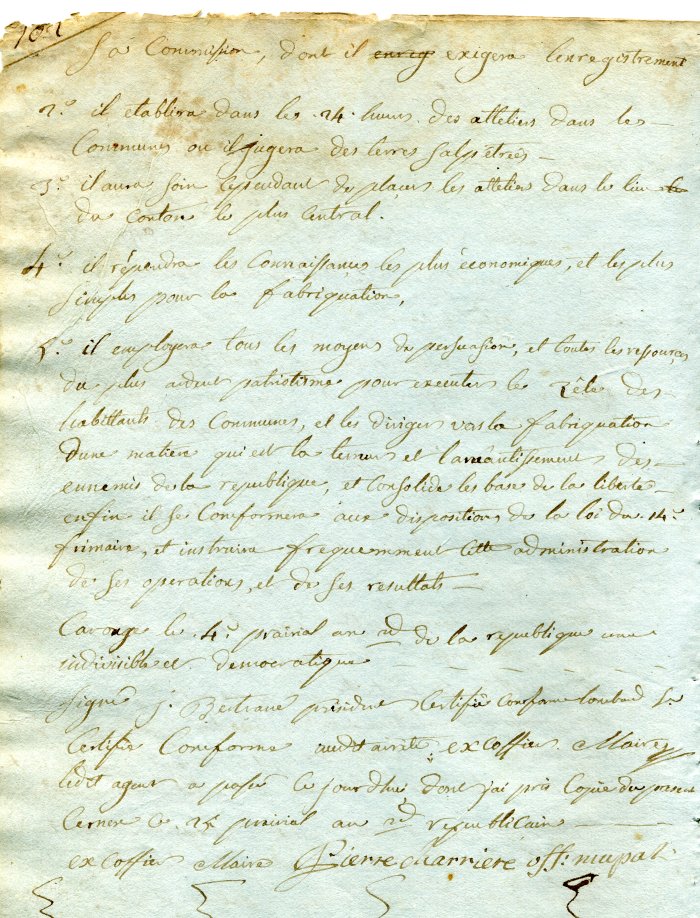 102
sa Commission, dont il enrig exigera lenregistrement
2.° il etablira dans les 24. heures des atteliers dans les
Communes ou il jugera des terres salpétrées
3.° il aura soin cependant de placer les atteliers dans le lieu
du canton le plus central.
4.° il répendra les Connaissances les plus économiques, et les plus
simples pour la fabriquation,
5.° il employera tous les moyens de persuasion, et toutes les ressources
du plus ardent patriotisme pour executer le zêle des
habittants des Communes, et les diriger vers la fabriquation
dune matiere qui est la terreur et l'anéantissement des
ennemis de la republique, et Consolide les base de la liberté
enfin il se Conformera aux dispositions de la loi du 14.°
frimaire, et instruira frequemment cette administration
de ses operations, et de ses resultats
Carouge le 4.° prairial an 2d de la republique une
indivisible et democratique
signé j. Bertrand président Certifié conforme
Certifié Conforme audit arrêté excoffier Maire
ledit agent a passé ce jourdhui dont jai pris Copie du present
Cernex ce 24 prairial an 2d republicain
excoffier Maire Pierre Charriere off. mupal